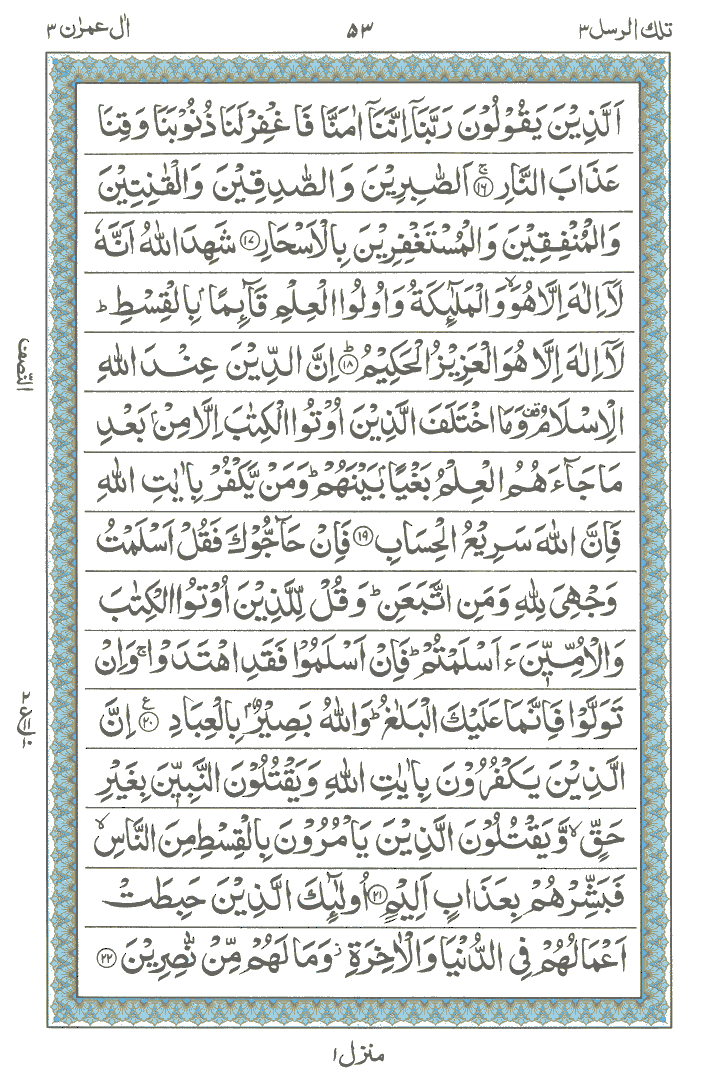 تلك الرسل ٣ ٥٣ ال عمرٰن ٣
اَلَّذِيْنَ يَقُوْلُوْنَ رَبَّنَاۤ اِنَّنَاۤ اٰمَنَّا فَاغْفِرْ لَنَا ذُنُوْبَنَا وَقِنَا
عَذَابَ النَّارِ ۚ‏﴿۱۶﴾ اَلصّٰبِرِيْنَ وَالصّٰدِقِيْنَ وَالْقٰنِتِيْنَ
وَالْمُنْفِقِيْنَ وَالْمُسْتَغْفِرِيْنَ بِالْاَسْحَارِ ﴿۱۷﴾ شَهِدَ اللّٰهُ اَنَّهٗ
لَاۤ اِلٰهَ اِلَّا هُوَ ۙ وَالْمَلٰٓئِكَةُ وَاُولُوا الْعِلْمِ قَآئِمًا ۢ بِالْقِسْطِ ؕ
لَاۤ اِلٰهَ اِلَّا هُوَ الْعَزِيْزُ الْحَكِيْمُ ؕ﴿۱۸﴾ اِنَّ الدِّيْنَ عِنْدَ اللّٰهِ
الْاِسْلَامُ ۟ وَمَا اخْتَلَفَ الَّذِيْنَ اُوْتُوا الْكِتٰبَ اِلَّا مِنْۢ بَعْدِ
مَا جَآءَهُمُ الْعِلْمُ بَغْيًا ۢ بَيْنَهُمْ ؕ وَمَنْ يَّكْفُرْ بِاٰيٰتِ اللّٰهِ
فَاِنَّ اللّٰهَ سَرِيْعُ الْحِسَابِ ﴿۱۹﴾ فَاِنْ حَآجُّوْكَ فَقُلْ اَسْلَمْتُ
وَجْهِيَ لِلّٰهِ وَمَنِ اتَّبَعَنِ ؕ وَقُلْ لِّلَّذِيْنَ اُوْتُوا الْكِتٰبَ
وَالْاُمِّيّٖنَ ءَاَسْلَمْتُمْ ؕ فَاِنْ اَسْلَمُوْا فَقَدِ اهْتَدَوْا ۚ وَاِنْ
تَوَلَّوْا فَاِنَّمَا عَلَيْكَ الْبَلٰغُ ؕ وَاللّٰهُ بَصِيْرٌۢ بِالْعِبَادِ ﴿۲۰﴾ ع اِنَّ
الَّذِيْنَ يَكْفُرُوْنَ بِاٰيٰتِ اللّٰهِ وَيَقْتُلُوْنَ النَّبِيّٖنَ بِغَيْرِ
حَقٍّ ۙ وَّيَقْتُلُوْنَ الَّذِيْنَ يَاْمُرُوْنَ بِالْقِسْطِ مِنَ النَّاسِ ۙ
فَبَشِّرْهُمْ بِعَذَابٍ اَلِيْمٍ ﴿۲۱﴾ اُولٰٓئِكَ الَّذِيْنَ حَبِطَتْ
اَعْمَالُهُمْ فِي الدُّنْيَا وَالْاٰخِرَةِ ۫ وَمَا لَهُمْ مِّنْ نّٰصِرِيْنَ ﴿۲۲﴾
النّصف
منزل ١